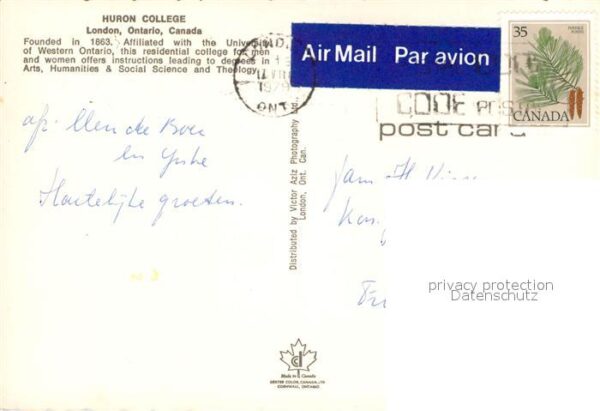 HURON COLLEGE
London, Ontario, Canada
Founded in 1863. Affiliated with the University
of Western Ontario, this residential college for men
and women offers instructions leading to degrees in
Arts, Humanities & Social Science and Theology.
Air Mail Par avion
35
CANADA
1979
ONT
CODE POSTAL
post card
de Boer
en Ynske
Hartelijke groeten.
Distributed by Victor Aziz Photography
London, Ont. Can.
privacy protection
Datenschutz
Made in Canada
DEXTER COLOR CANADA LTD
CORNWALL, ONTARIO